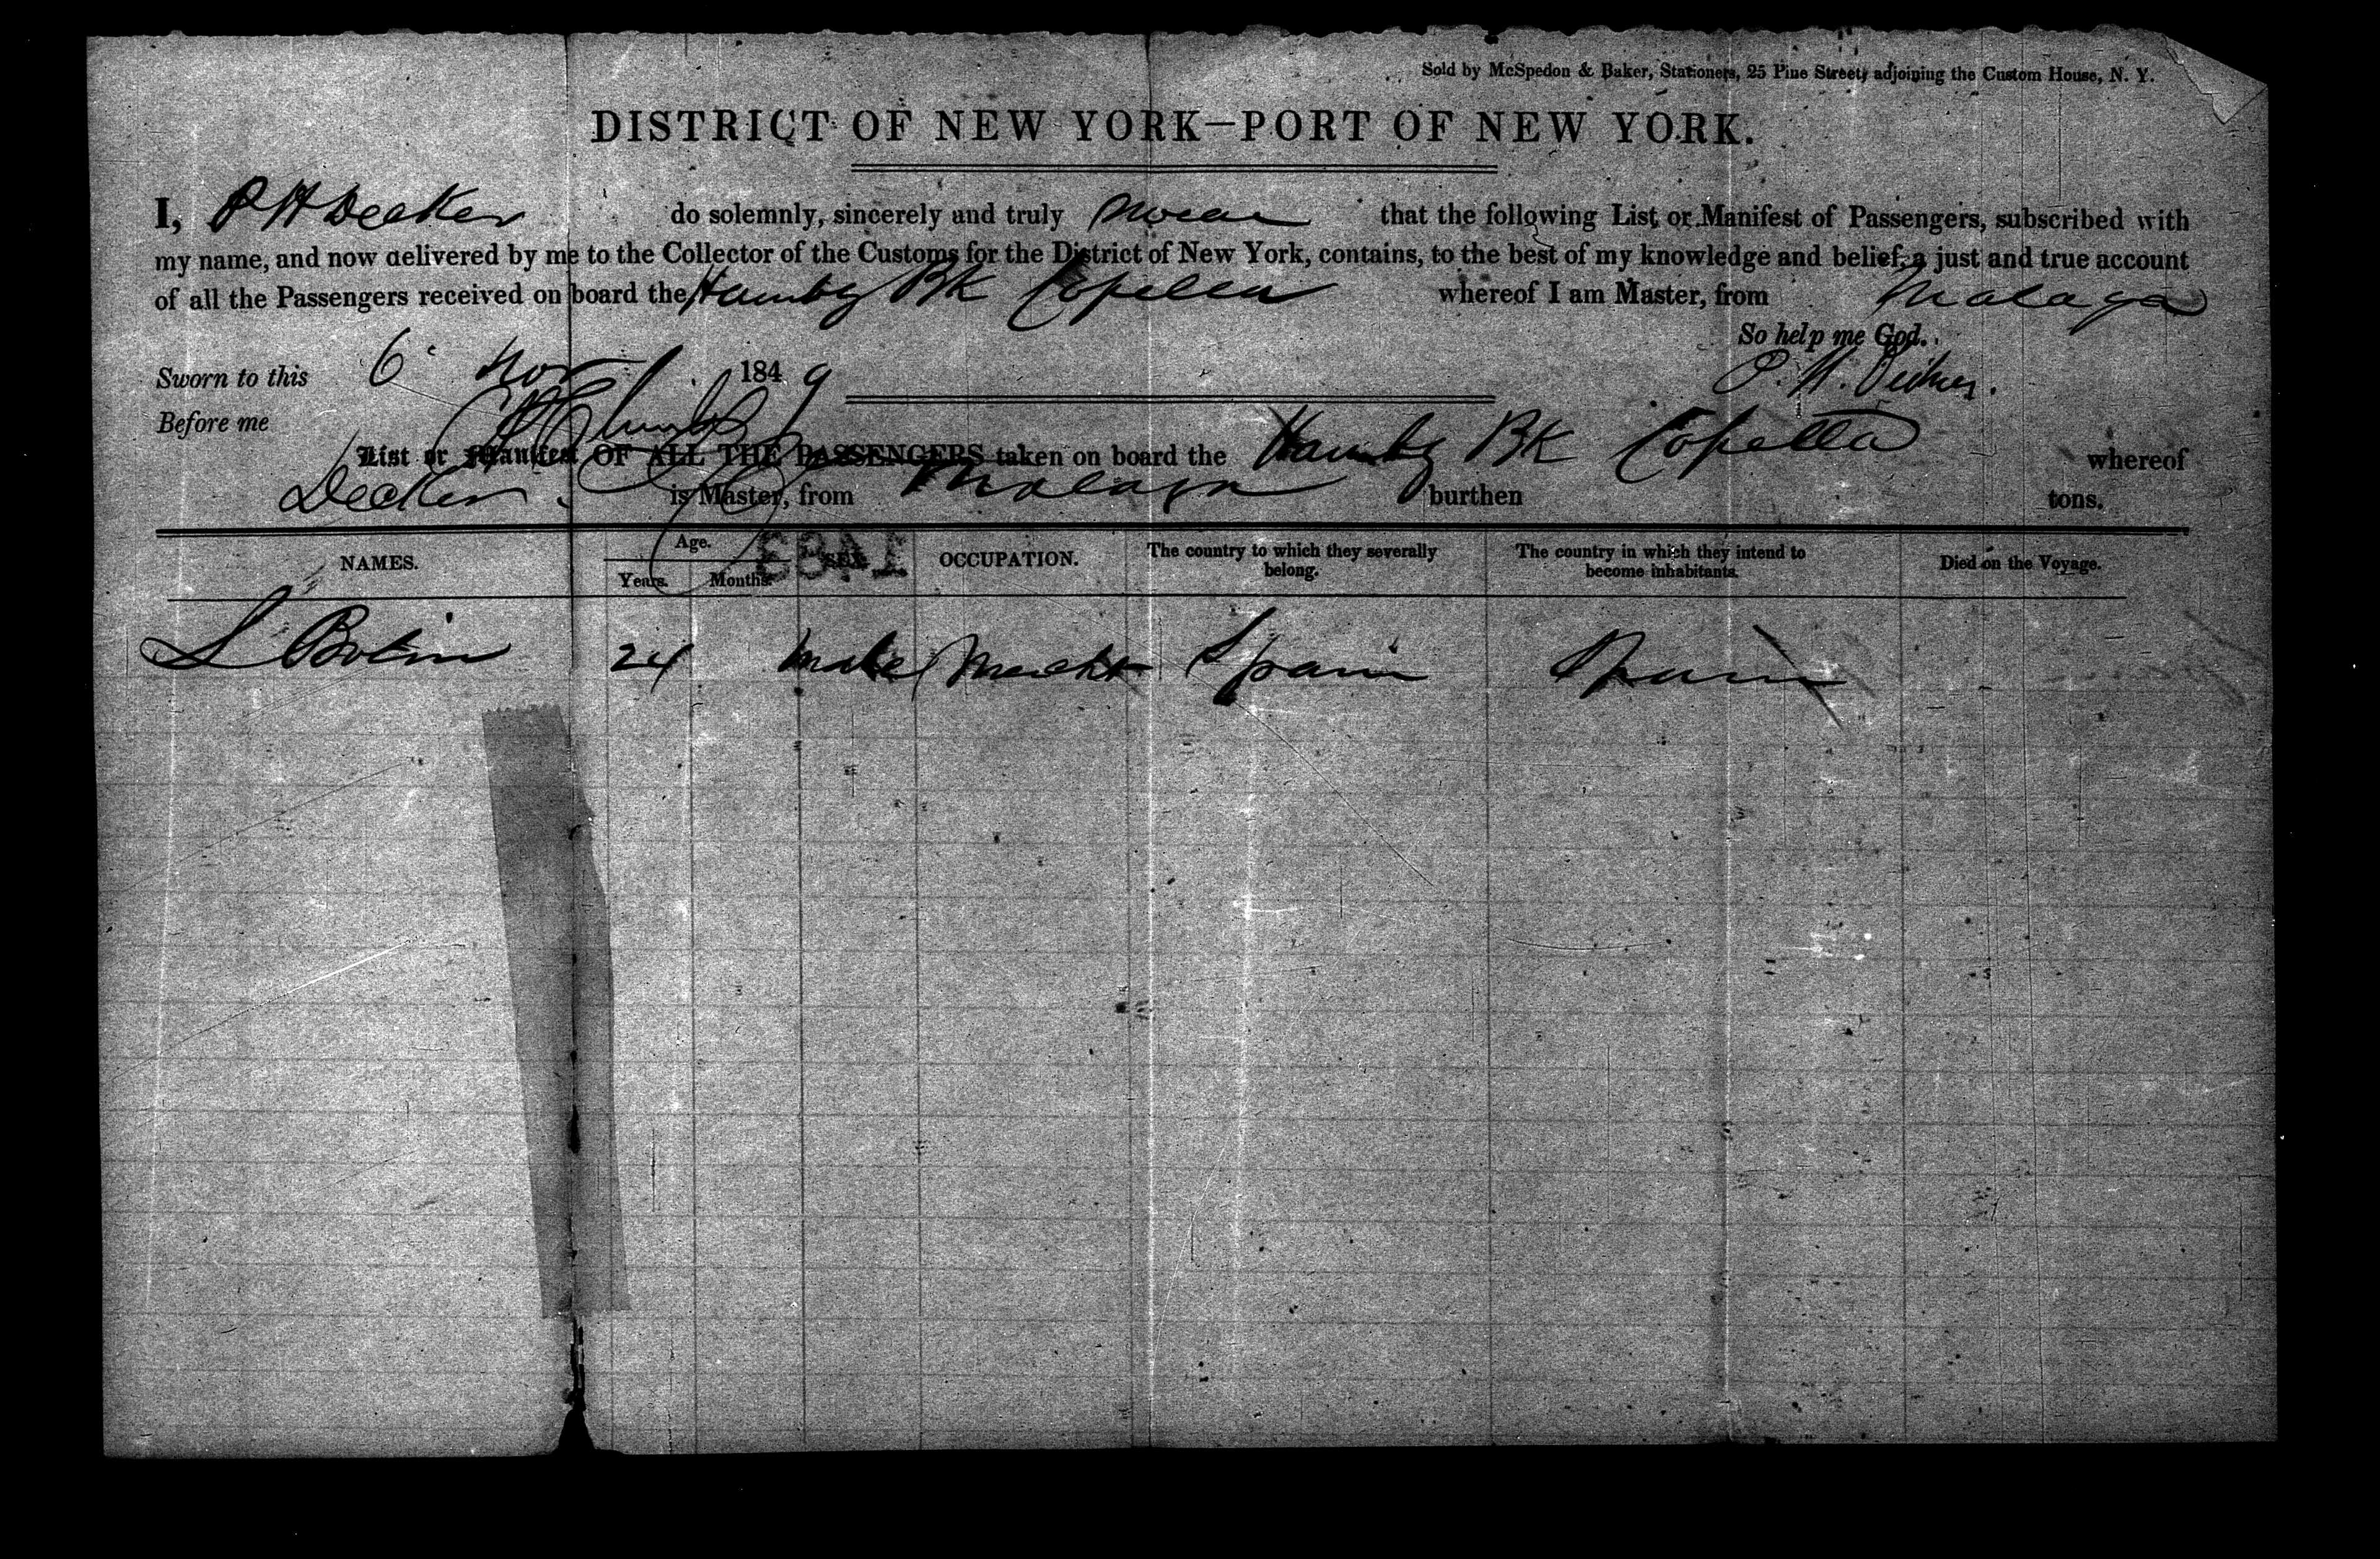 Sold by McSpedon & Baker, Stationers, 25 Pine Street, adjoining the Custom House, N. Y.
DISTRICT OF NEW YORK—PORT OF NEW YORK.
I, P H Decker do solemnly, sincerely and truly swear that the following List or Manifest of Passengers, subscribed with
my name, and now delivered by me to the Collector of the Customs for the District of New York, contains, to the best of my knowledge and belief, a just and true account
of all the Passengers received on board the Hambg BK Copella whereof I am Master, from Malaga
So help me God.
Sworn to this 6 Nov 1849
P. H.
Before me
List or Manifest OF ALL THE PASSENGERS taken on board the Hambg BK Copella whereof
Decker is Master, from Malaga burthen tons.
NAMES. Age. Years. Months. SEX. OCCUPATION. The country to which they severally belong. The country in which they intend to become inhabitants. Died on the Voyage.
1483
S Bolin 24 male Mercht Spain Spain